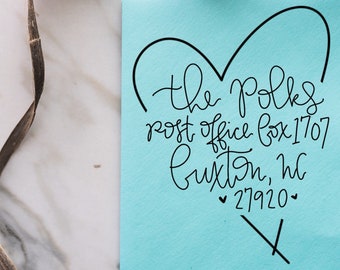 the Polks
post office box 1707
buxton, NC
27920